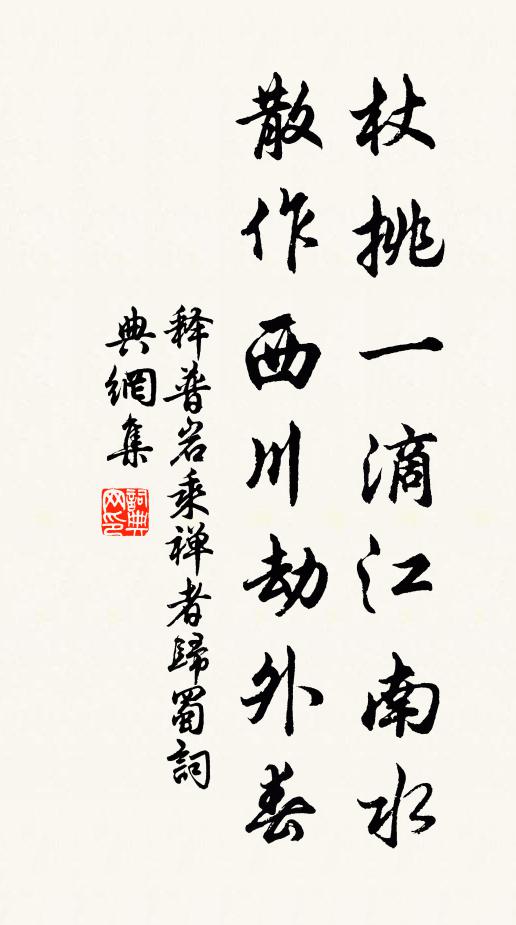 杖挑一滴江南水
散作西川劫外春
释普岩乘禅者歸蜀詞
典網集
詞典網印